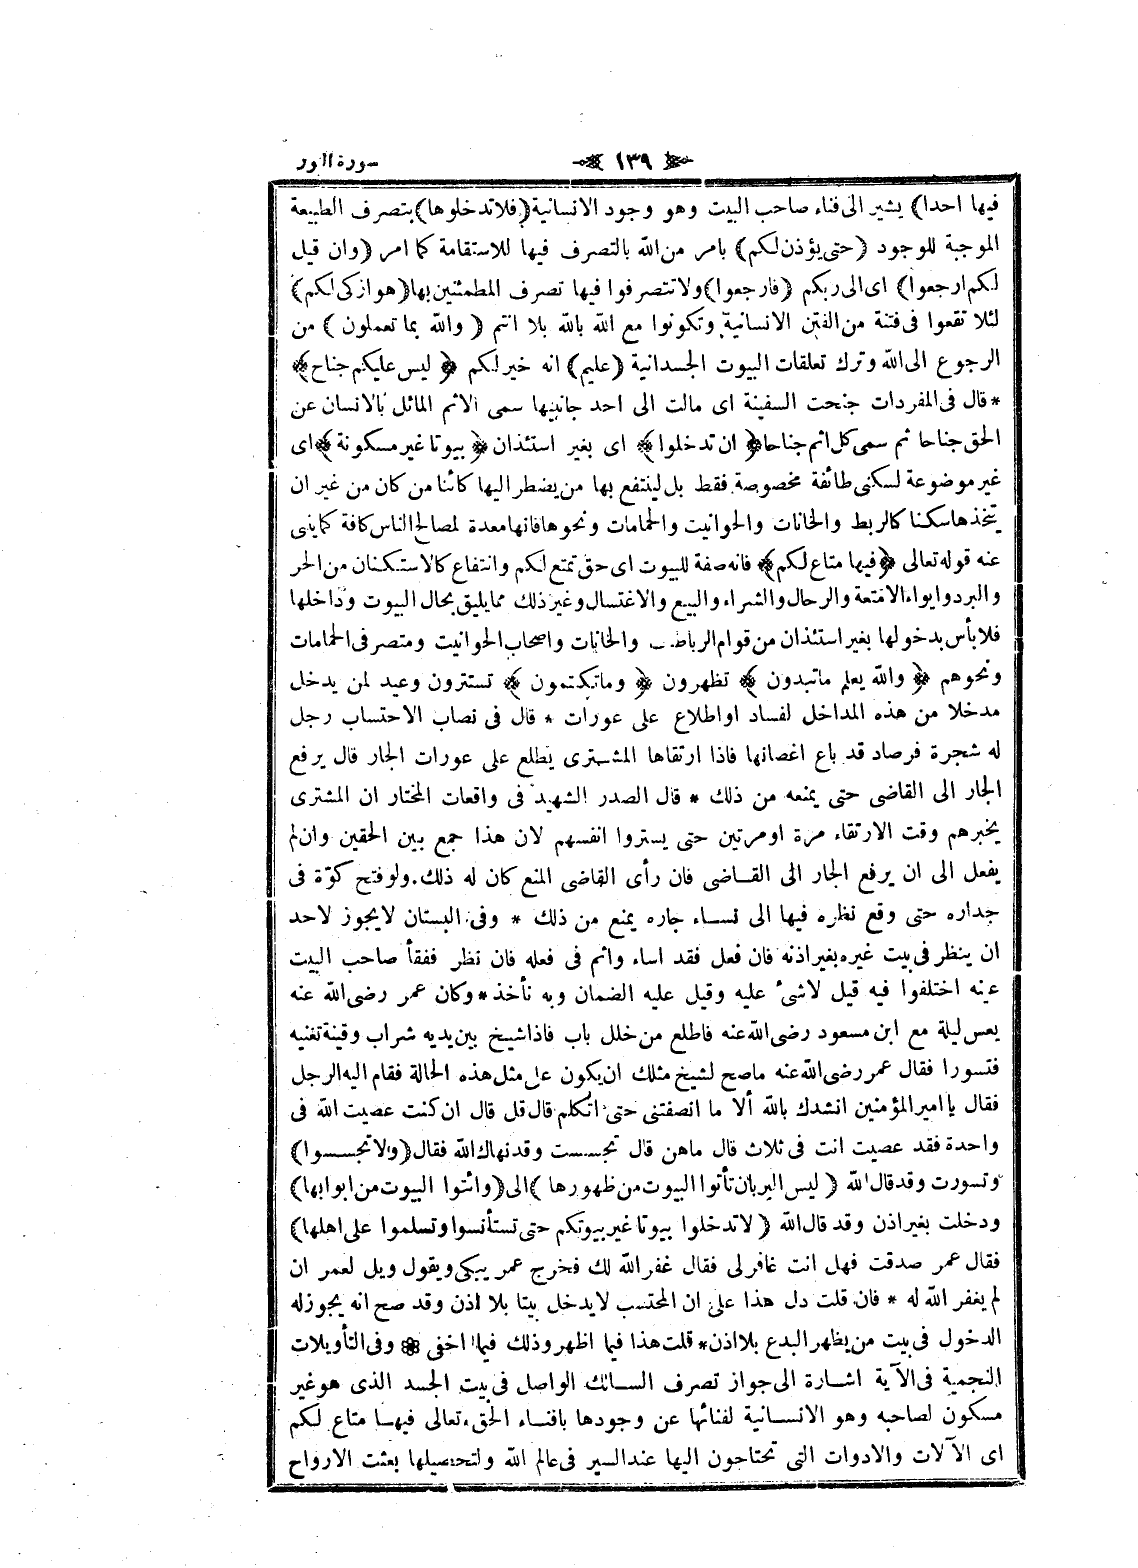 سورة النور ﴿ ١٣٩ ﴾
فيها احدا) يشير الى فناء صاحب البيت وهو وجود الانسانية (فلا تدخلوها) بتصرف الطبيعة
الموجبة للوجود (حتى يؤذن لكم) بامر من الله بالتصرف فيها للاستقامة كما امر (وان قيل
لكم ارجعوا) اى الى ربكم (فارجعوا) ولا تتصرفوا فيها تصرف المطمئنين بها (هو ازكى لكم)
لئلا تقعوا فى فتنة من الفتن الانسانية وتكونوا مع الله بالله بلا انتم (والله بما تعملون) من
الرجوع الى الله وترك تعلقات البيوت الجسدانية (عليم) انه خير لكم ﴿ ليس عليكم جناح ﴾
* قال فى المفردات جنحت السفينة اى مالت الى احد جانبيها سمى الاثم المائل بالانسان عن
الحق جناحا ثم سمى كل اثم جناحا ﴿ ان تدخلوا ﴾ اى بغير استئذان ﴿ بيوتا غير مسكونة ﴾ اى
غير موضوعة لسكنى طائفة مخصوصة فقط بل لينتفع بها من يضطر اليها كائنا من كان من غير ان
يتخذها سكنا كالربط والخانات والحوانيت والحمامات ونحوها فانها معدة لمصالح الناس كافة كما ينبى
عنه قوله تعالى ﴿ فيها متاع لكم ﴾ فانه صفة للبيوت اى حق تمتع لكم وانتفاع كالاستكنان من الحر
والبرد وايواء الامتعة والرحال والشراء والبيع والاغتسال وغير ذلك مما يليق بحال البيوت وداخلها
فلا بأس بدخولها بغير استئذان من قوام الرباطـ ـ والخانات واصحاب الحوانيت ومتصرفى الحمامات
ونحوهم ﴿ والله يعلم ما تبدون ﴾ تظهرون ﴿ وما تكتمون ﴾ تستترون وعيد لمن يدخل
مدخلا من هذه المداخل لفساد او اطلاع على عورات * قال فى نصاب الاحتساب رجل
له شجرة فرصاد قد باع اغصانها فاذا ارتقاها المشترى يطلع على عورات الجار قال يرفع
الجار الى القاضى حتى يمنعه من ذلك * قال الصدر الشهيد فى واقعات المختار ان المشترى
يخبرهم وقت الارتقاء مرة او مرتين حتى يستروا انفسهم لان هذا جمع بين الحقين وان لم
يفعل الى ان يرفع الجار الى القاضى فان رأى القاضى المنع كان له ذلك . ولو فتح كوّة فى
جداره حتى وقع نظره فيها الى نساء جاره يمنع من ذلك * وفى البستان لا يجوز لاحد
ان ينظر فى بيت غيره بغير اذنه فان فعل فقد اساء واثم فى فعله فان نظر ففقأ صاحب البيت
عينه اختلفوا فيه قيل لا شىء عليه وقيل عليه الضمان وبه نأخذ * وكان عمر رضى الله عنه
يعس ليلة مع ابن مسعود رضى الله عنه فاطلع من خلل باب فاذا شيخ بين يديه شراب وقينة تغنيه
فتسورا فقال عمر رضى الله عنه ما صح لشيخ مثلك ان يكون على مثل هذه الحالة فقام اليه الرجل
فقال يا امير المؤمنين انشدك بالله ألا ما انصفتنى حتى اتكلم قال قل قال ان كنت عصيت الله فى
واحدة فقد عصيت انت فى ثلاث قال ماهن قال تجسست وقد نهاك الله فقال (ولا تجسسوا)
وتسورت وقد قال الله (ليس البر بان تأتوا البيوت من ظهورها) الى (وائتوا البيوت من ابوابها)
ودخلت بغير اذن وقد قال الله (لا تدخلوا بيوتا غير بيوتكم حتى تستأنسوا وتسلموا على اهلها)
فقال عمر صدقت فهل انت غافر لى فقال غفر الله لك فخرج عمر يبكى ويقول ويل لعمر ان
لم يغفر الله له * فان قلت دل هذا على ان المحتسب لا يدخل بيتا بلا اذن وقد صح انه يجوز له
الدخول فى بيت من يظهر البدع بلا اذن * قلت هذا فيما اظهر وذلك فيما اخفى ❁ وفى التأويلات
النجمية فى الآية اشارة الى جواز تصرف السالك الواصل فى بيت الجسد الذى هو غير
مسكون لصاحبه وهو الانسانية لفنائها عن وجودها بافناء الحق تعالى فيها متاع لكم
اى الآلات والادوات التى تحتاجون اليها عند السير فى عالم الله ولتحصيلها بعثت الارواح